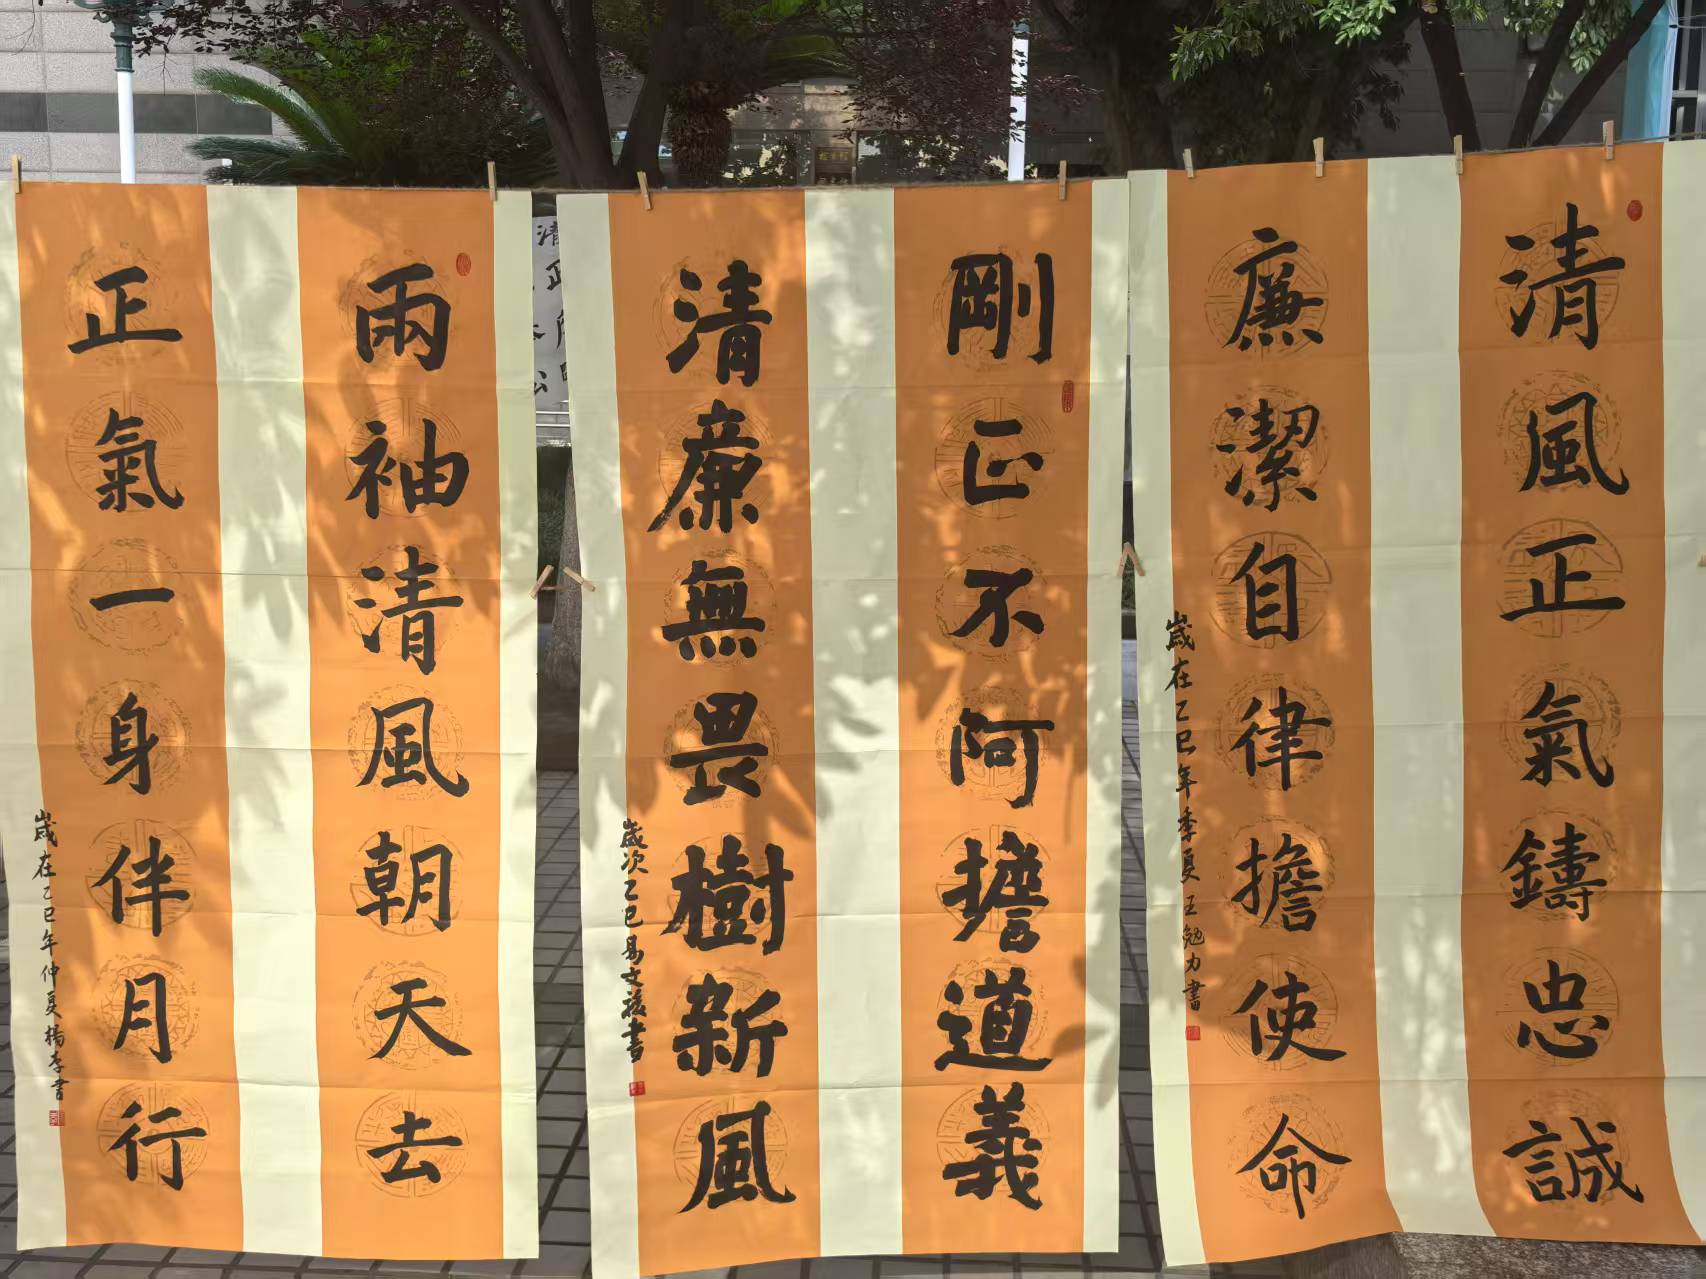 清風正氣鑄忠誠
廉潔自律擔使命
歲在乙巳年季夏王勉力書
剛正不阿擔道義
清廉無畏樹新風
歲次乙巳易文穫書
兩袖清風朝天去
正氣一身伴月行
歲在乙巳年仲夏楊李書